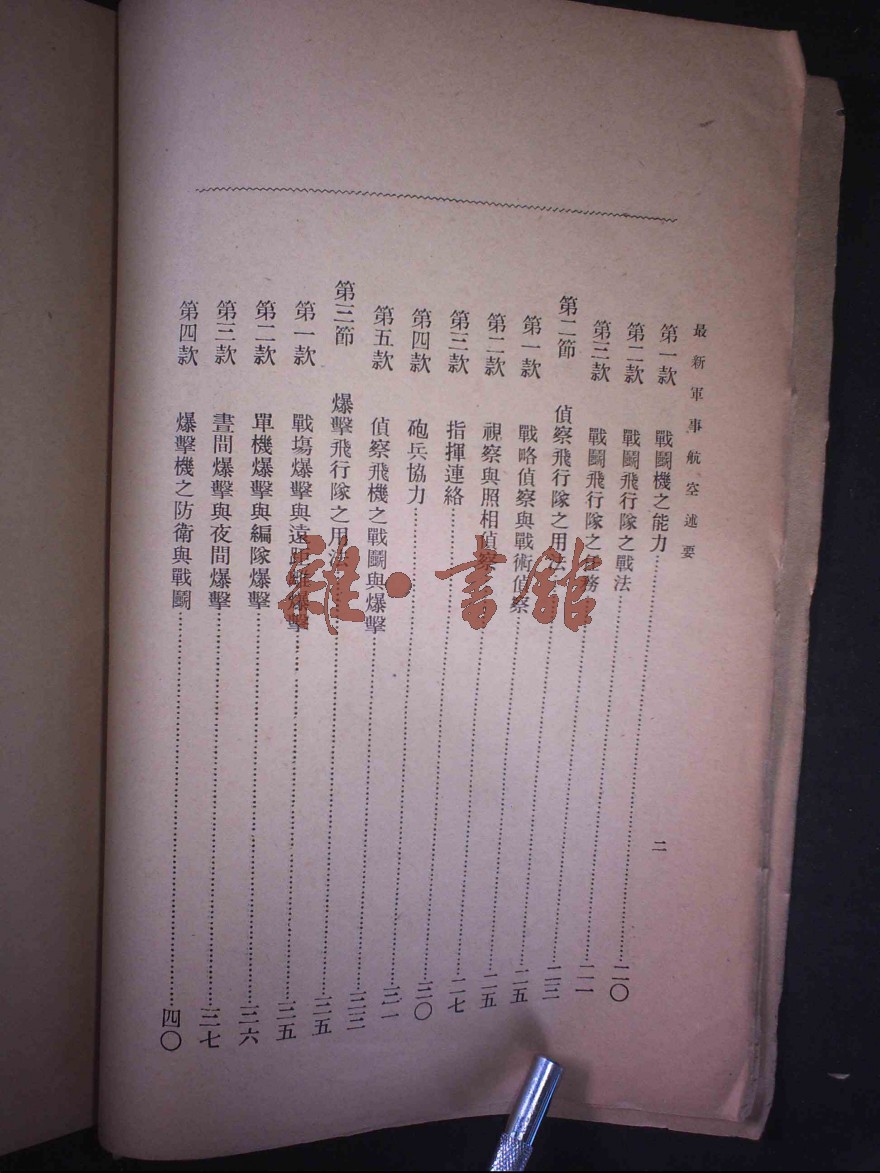 最新軍事航空述要 二
第一款 戰鬭機之能力……二〇
第二款 戰鬭飛行隊之戰法……二一
第三款 戰鬭飛行隊之任務……二三
第二節 偵察飛行隊之用法……二五
第一款 戰略偵察與戰術偵察……二五
第二款 視察與照相偵察……二七
第三款 指揮連絡……三〇
第四款 砲兵協力……三一
第五款 偵察飛機之戰鬭與爆擊……三三
第三節 爆擊飛行隊之用法……三五
第一款 戰塲爆擊與遠距離爆擊……三五
第二款 單機爆擊與編隊爆擊……三六
第三款 晝間爆擊與夜間爆擊……三七
第四款 爆擊機之防衛與戰鬭……四〇
雜·書館